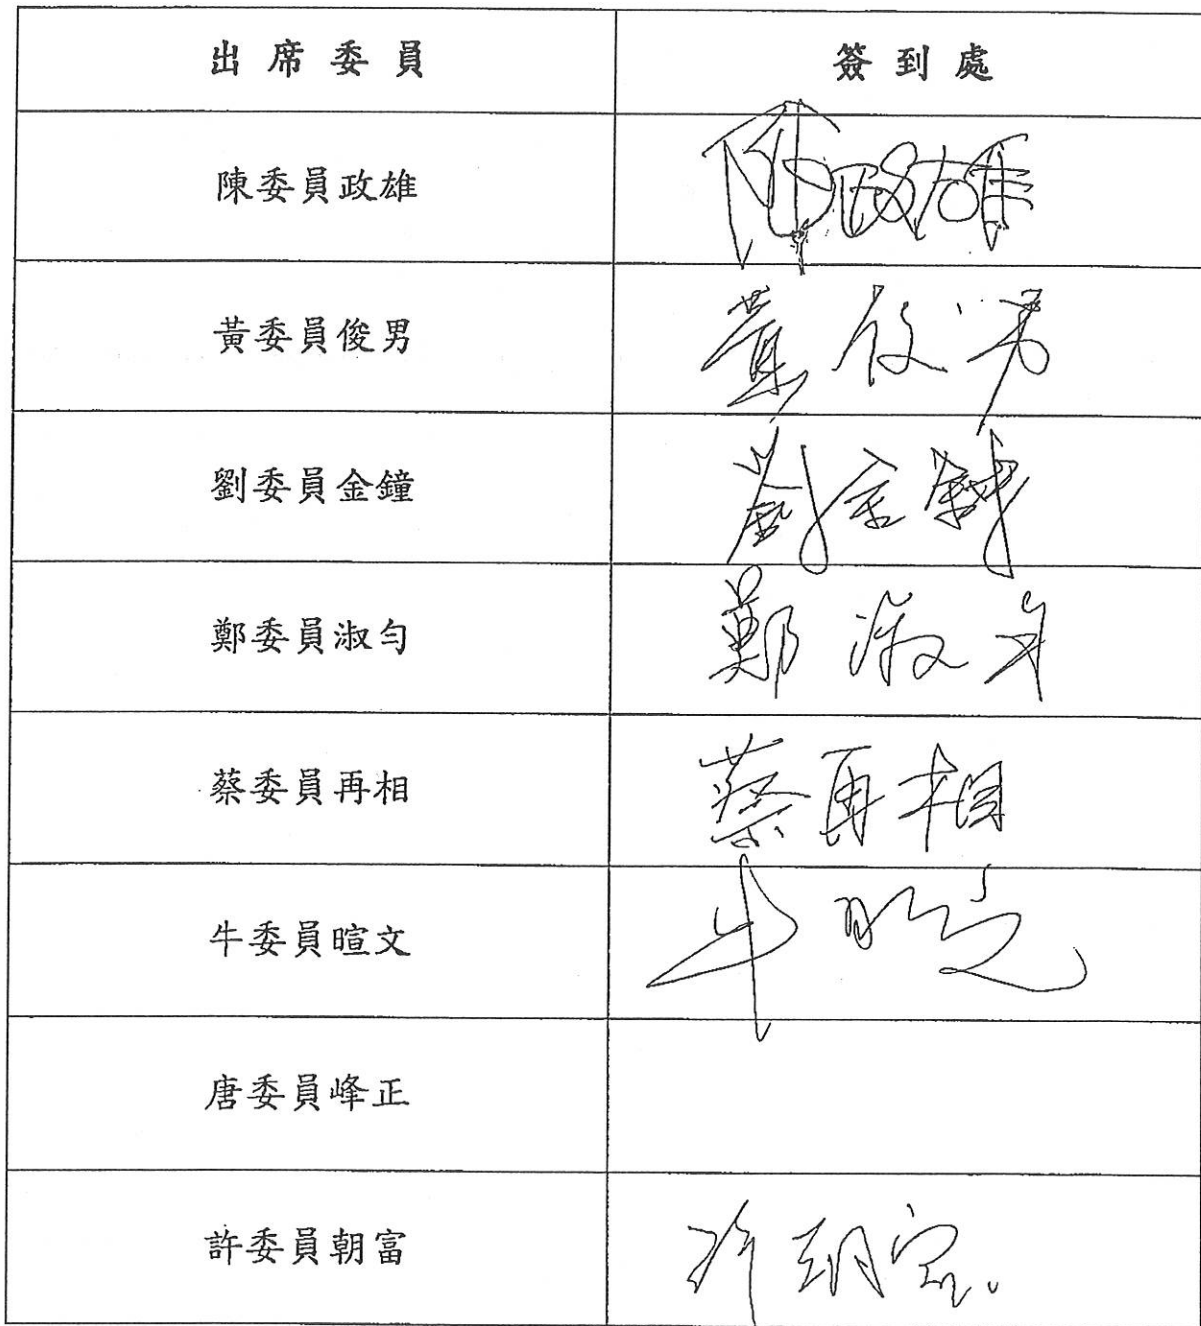 出席委員 簽到處
陳委員政雄 陳政雄
黃委員俊男 黃俊男
劉委員金鐘 劉金鐘
鄭委員淑勻 鄭淑勻
蔡委員再相 蔡再相
牛委員暄文 牛暄文
唐委員峰正
許委員朝富 許朝富